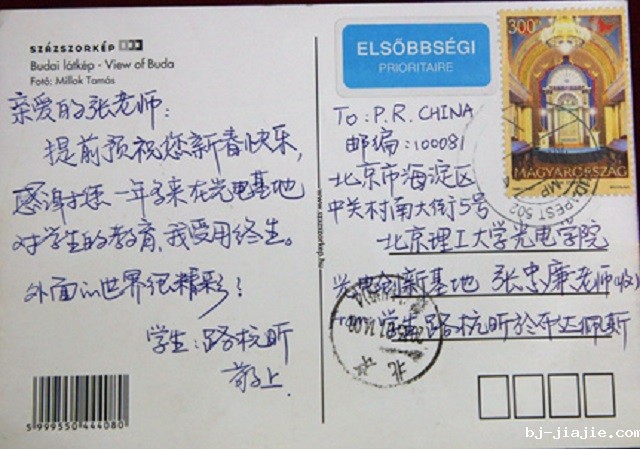 SZÁZSZORKÉP
Budai látkép - View of Buda
Fotó: Millok Tamás
亲爱的张老师:
提前预祝您新春快乐,
感谢您一年多来在光电基地
对学生的教育,我受用终生。
外面的世界很精彩!
学生:路杭昕
敬上.
5 999550 444080
www.szazszorkep.hu
ELSŐBBSÉGI
PRIORITAIRE
300
MAGYARORSZÁG
BUDAPEST 502
To: P.R. CHINA
邮编:100081
北京市海淀区
中关村南大街5号
北京理工大学光电学院
光电创新基地 张忠廉老师(收)
学生 路杭昕於布达佩斯
北京
bj-jiajie.com